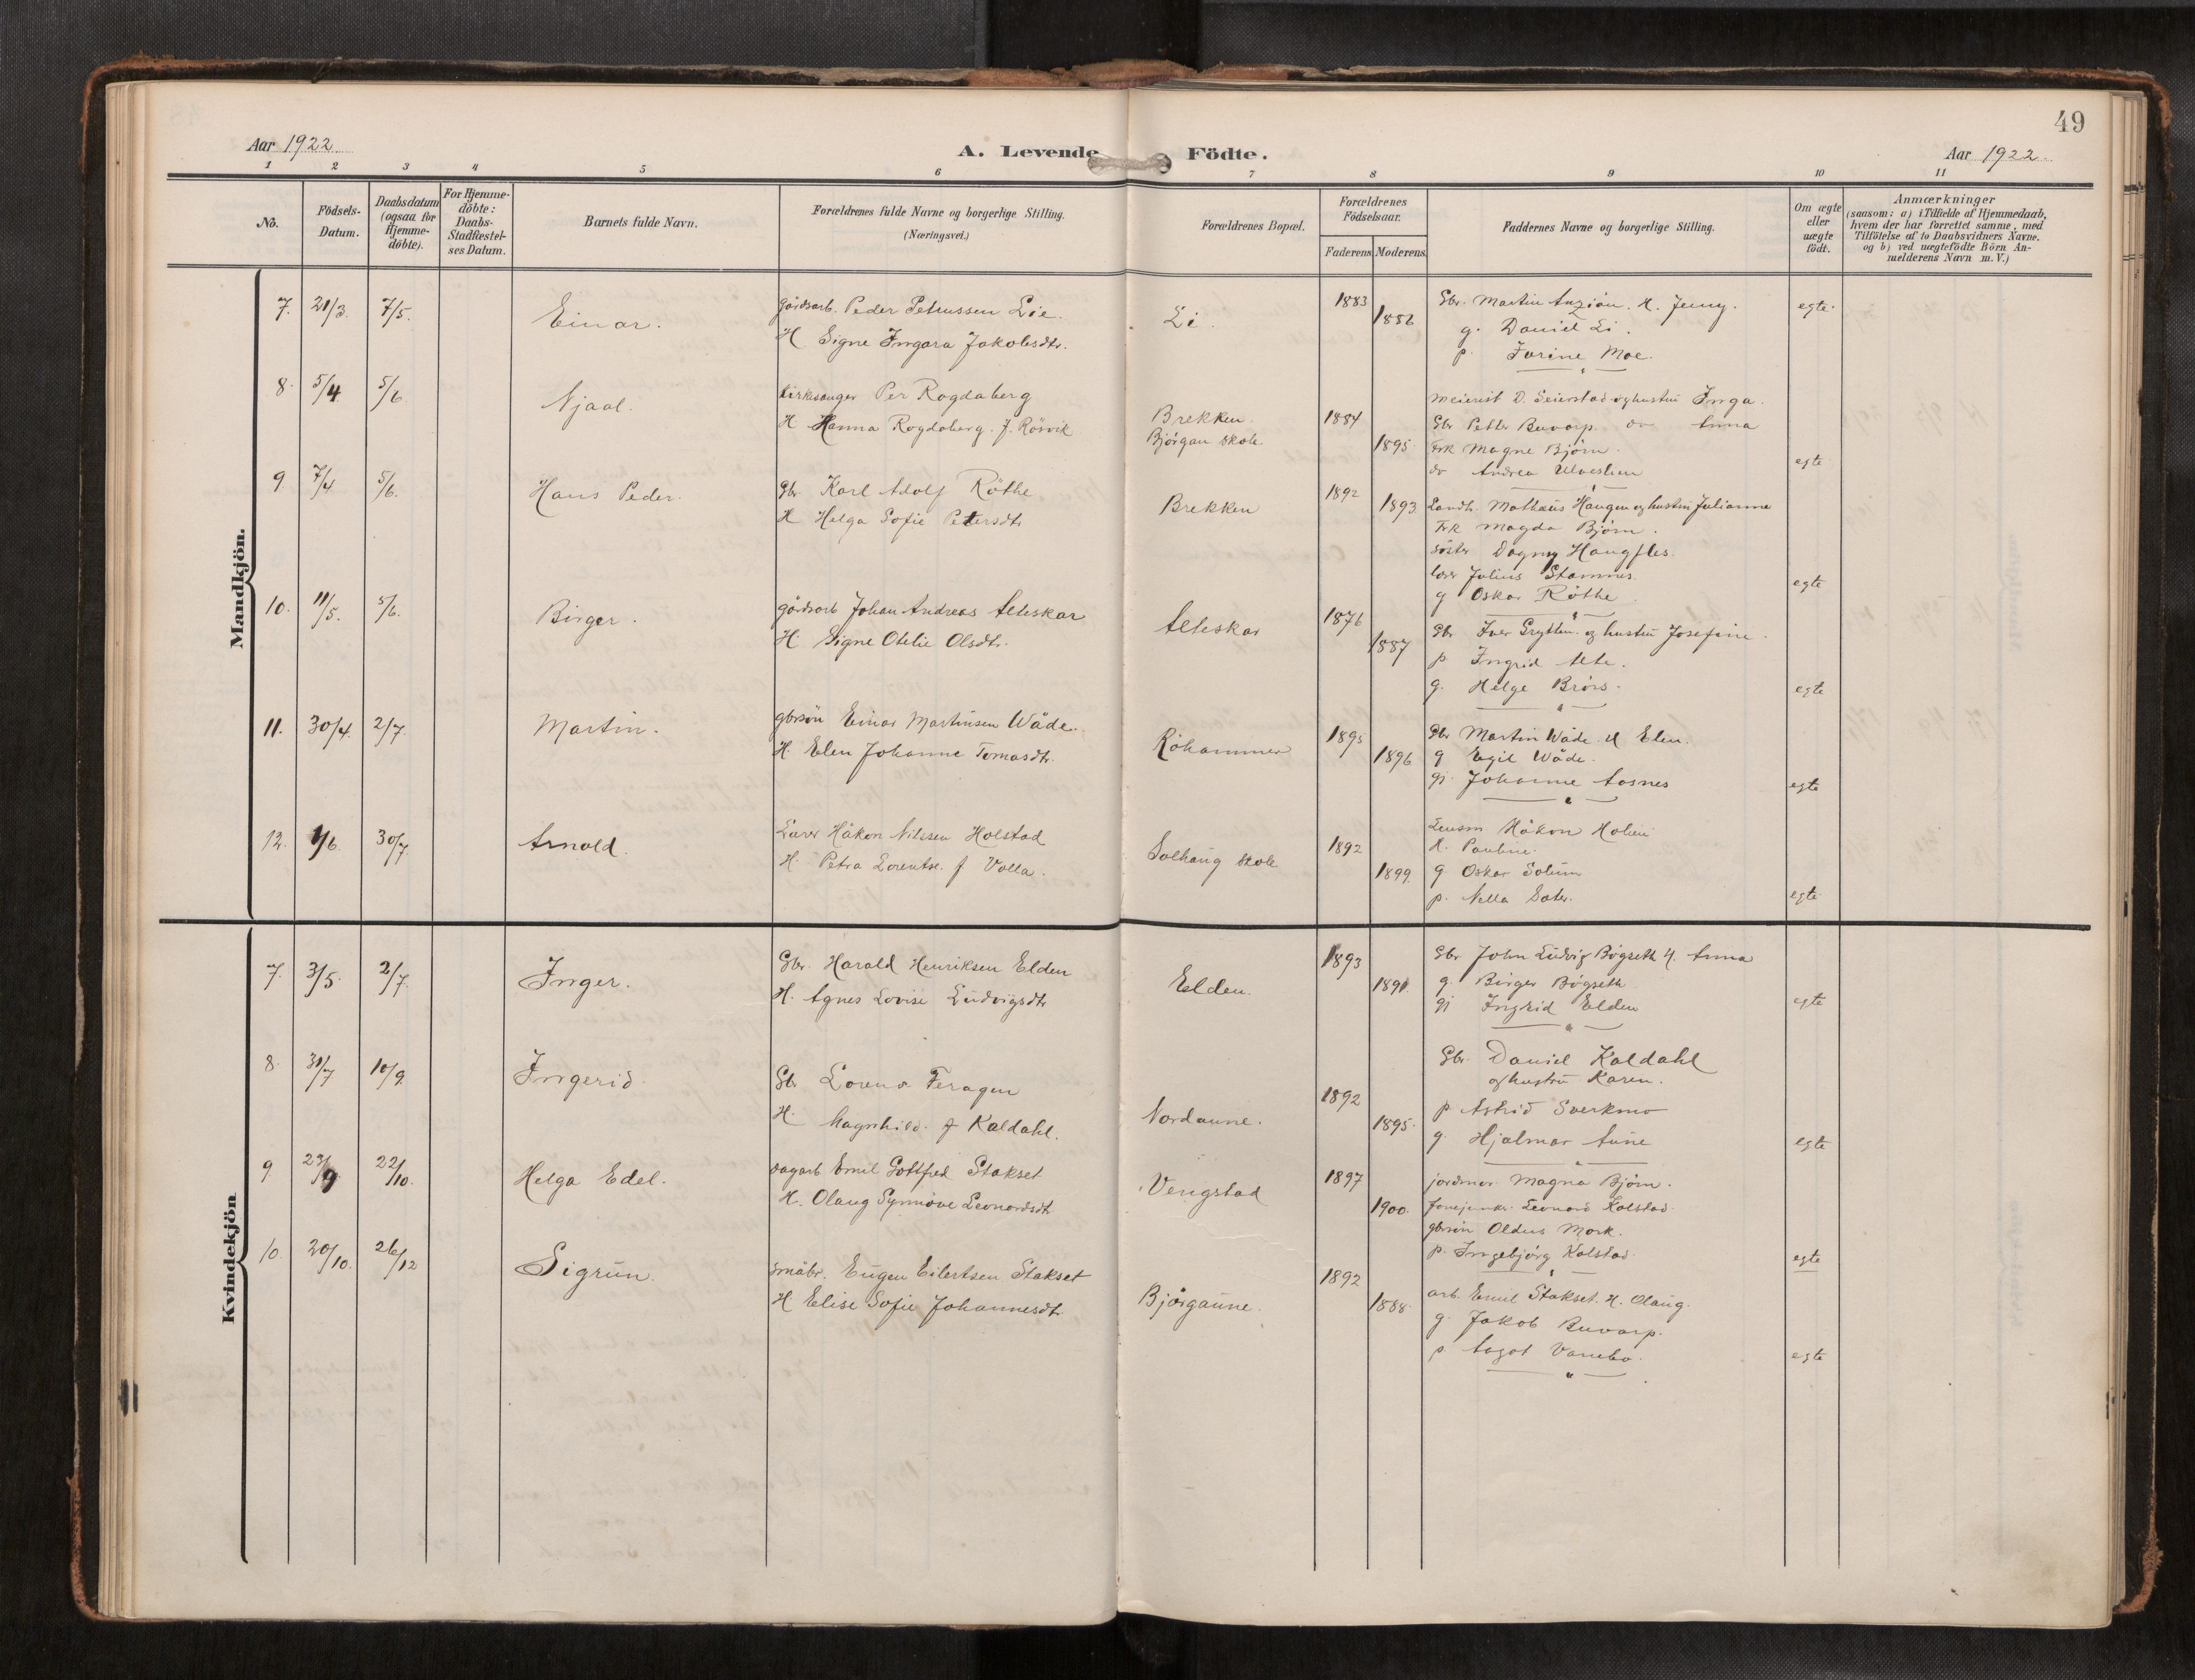 49
Aar 1922.
A. Levende Födte.
Aar 1922.
1 2 3 4 5 6 7 8 9 10 11
No.
Födsels-
Datum.
Daabsdatum
(ogsaa for
Hjemme-
döbte).
For Hjemme-
döbte:
Daabs-
Stadfæstel-
ses Datum.
Barnets fulde Navn.
Forældrenes fulde Navne og borgerlige Stilling.
(Næringsvei.)
Forældrenes Bopæl.
Forældrenes
Födselsaar.
Faderens Moderens.
Faddernes Navne og borgerlige Stilling.
Om ægte
eller
uægte
födt.
Anmærkninger
(saasom: a) i Tilfælde af Hjemmedaab,
hvem der har forrettet samme, med
Tilföielse af to Daabsvidners Navne,
og b) ved uægtefödte Börn An-
melderens Navn m. V.)
Mandkjön.
7. 21/3. 7/5. Einar.
gårdsarb. Peder Petrussen Lie.
H Signe Ingara Jakobsdtr.
Li.
1883
1886
Gbr. Martin H. Jenny.
g. Daniel Li.
p. Moe.
egte.
8. 5/4 5/6. Njaal.
kirkesanger Per Rogdaberg
H Hanna Rogdaberg. f. Rösvik
Brekken.
Bjørgan skole.
1884
1895
meierist D. Seierstad og hustru Inga.
Gbr Petter Buvarp. do Anna
Frk Magne Bjørn.
do Andrea
egte
9. 7/4 5/6. Hans Peder.
Gbr. Karl Adolf Röthe
H Helga Sofie Petersdtr
Brekken
1892
1893
Landh. Mathæus Haugen og hustru Julianne
Frk Magda Bjørn.
söster Dagny Haugfles.
lærer Julius Stamnes.
g Oskar Röthe
egte
10. 11/5. 5/6. Birger.
gårdsarb Johan Andreas Alteskar
H. Signe Otelie Olsdtr.
Alteskar
1876
1887
Gbr Iver Grytten og hustru Josefine.
p Ingrid Alte.
g. Helge Brörs.
egte
11. 30/4. 2/7. Martin.
gbrsön Einar Martinsen Wåde.
H. Elen Johanne Tomasdtr.
Röhammer
1895
1896
Gbr Martin Wåde H Elen.
g Egil Wåde.
gj. Johanne Aasnes
egte
12. 1/6. 30/7. Arnold.
Lærer Håkon Nilssen Holstad
H. Petra Lorentse. f Volla.
Solhaug skole
1892
1899.
Lensm Håkon Holien
H. Pauline.
g Oskar Solum
p. Nella Sæter.
egte
Kvindekjön
7. 3/5. 2/7. Inger.
Gbr. Harald Henriksen Elden
H. Agnes Lovise Ludvigsdtr
Elden.
1893
1891.
Gbr John Ludvig Bøgseth H. Anna
g. Birger Bøgseth
gj Ingrid Elden
egte
8. 31/7 10/9. Ingerid
Gbr Lorens Feragen
H. Magnhild. f Kaldahl.
Nordaune.
1892
1895.
Gbr. Daniel Kaldahl
og hustru Karen.
p Astrid Sverkmo
g. Hjalmar Aune
egte
9 23/9 22/10. Helga Edel.
dagarb Emil Gottfred Stakset
H. Olaug Synnöve Leonardsdtr
Vengstad
1897
1900.
jordmor Magna Bjørn.
Leonard Kolstad
gbrsön Oldus Mork.
p. Ingebjörg Kolstad.
egte
10. 20/10. 26/12 Sigrun.
småbr. Eugen Eilertsen Stakset
H Elise Sofie Johannesdtr
Bjørgaune.
1892
1888.
arb. Emil Stakset. H. Olaug.
g. Jakob Buvarp.
p Aagot Vanebo.
egte